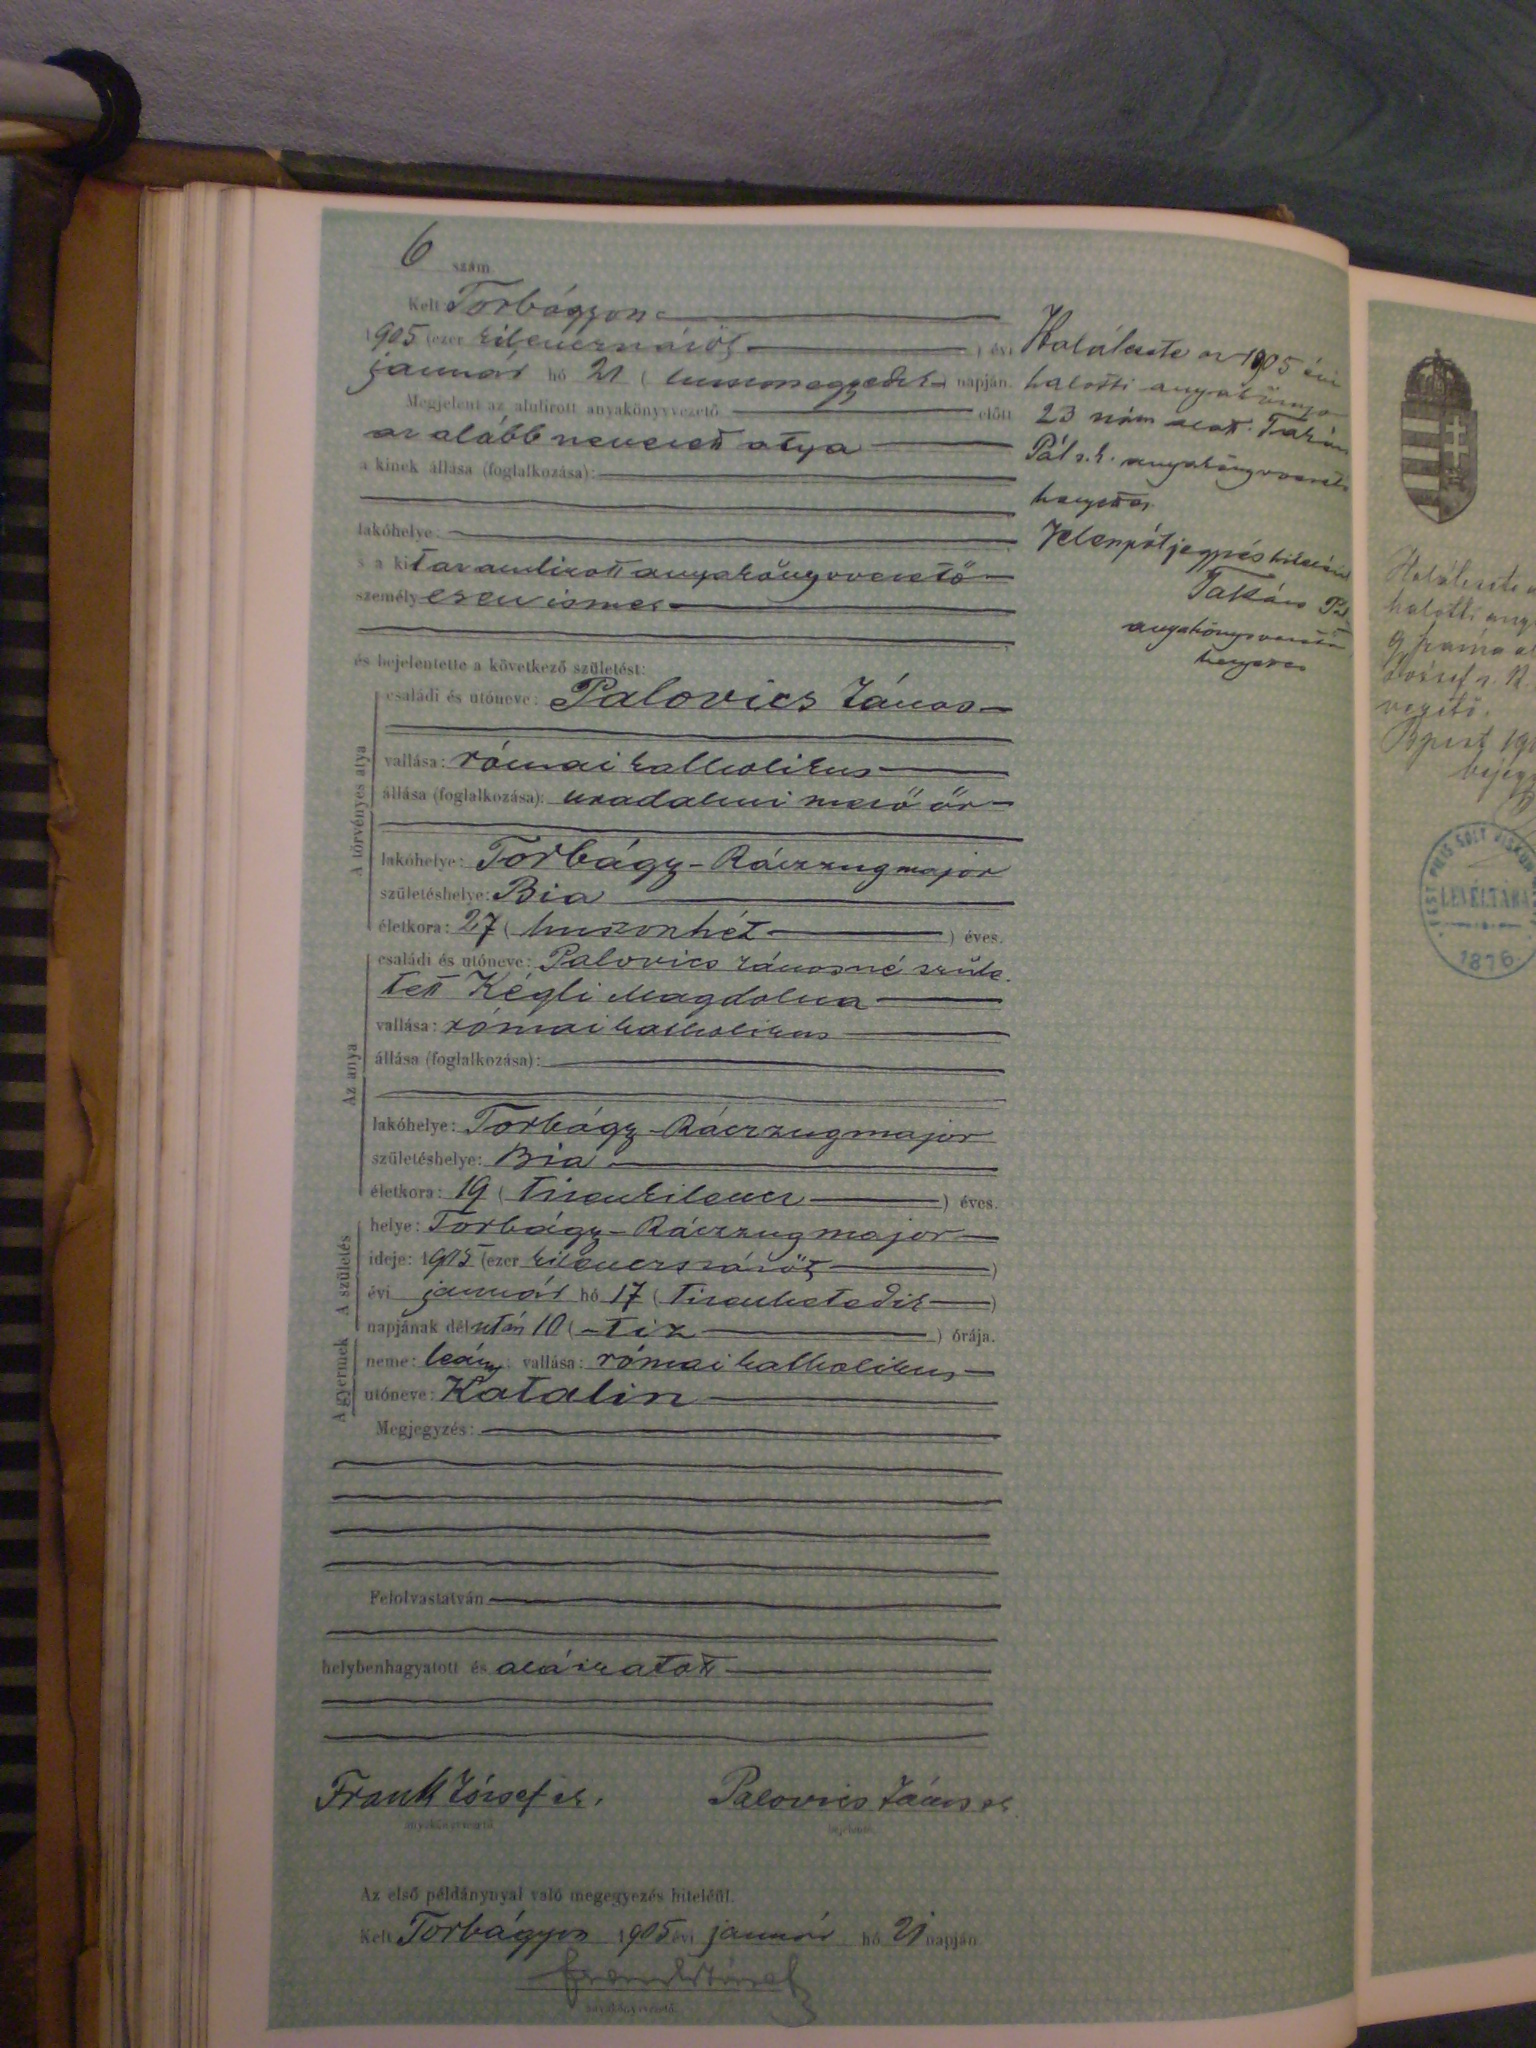 6 szám
Kelt Torbágyon
1905 (ezer kilenczszázöt) évi
január hó 21 (huszonegyedik) napján.
Megjelent az alulirott anyakönyvvezető előtt
az alább nevezett atya
a kinek állása (foglalkozása):
lakóhelye:
s a kit az alulirott anyakönyvvezető
személyesen ismer
és bejelentette a következő születést:
A törvényes atya
családi és utóneve: Palovics János
vallása: római katholikus
állása (foglalkozása): uradalmi mező őr
lakóhelye: Torbágy-Ráczzugmajor
születéshelye: Bia
életkora: 27 (huszonhét) éves.
Az anya
családi és utóneve: Palovics Jánosné szüle-
tett Kégli Magdolna
vallása: római katholikus
állása (foglalkozása):
lakóhelye: Torbágy-Ráczzugmajor
születéshelye: Bia
életkora: 19 (tizenkilencz) éves.
A születés
helye: Torbágy-Ráczzugmajor
ideje: 1905 (ezer kilenczszázöt)
évi január hó 17 (tizenhetedik)
napjának délután 10 (tiz) órája.
A gyermek
neme: leány; vallása: római katholikus
utóneve: Katalin
Megjegyzés:
Felolvastatván
helybenhagyatott és aláiratott
Frank József sk. Palovics János sk.
anyakönyvvezető bejelentő.
Az első példánynyal való megegyezés hiteléül.
Kelt Torbágyon 1905 évi január hó 21 napján
Frank József
anyakönyvvezető.
Haláleste az 1905 évi
halotti anyakönyv
23 szám alatt. Takács
Pál s.k. anyakönyvvezető
helyettes.
Jelen utójegyzés hiteléül
Takács Pál
anyakönyvvezető
helyettes
Haláleste
halotti
József s. k.
LEVÉLTÁRA
1876.